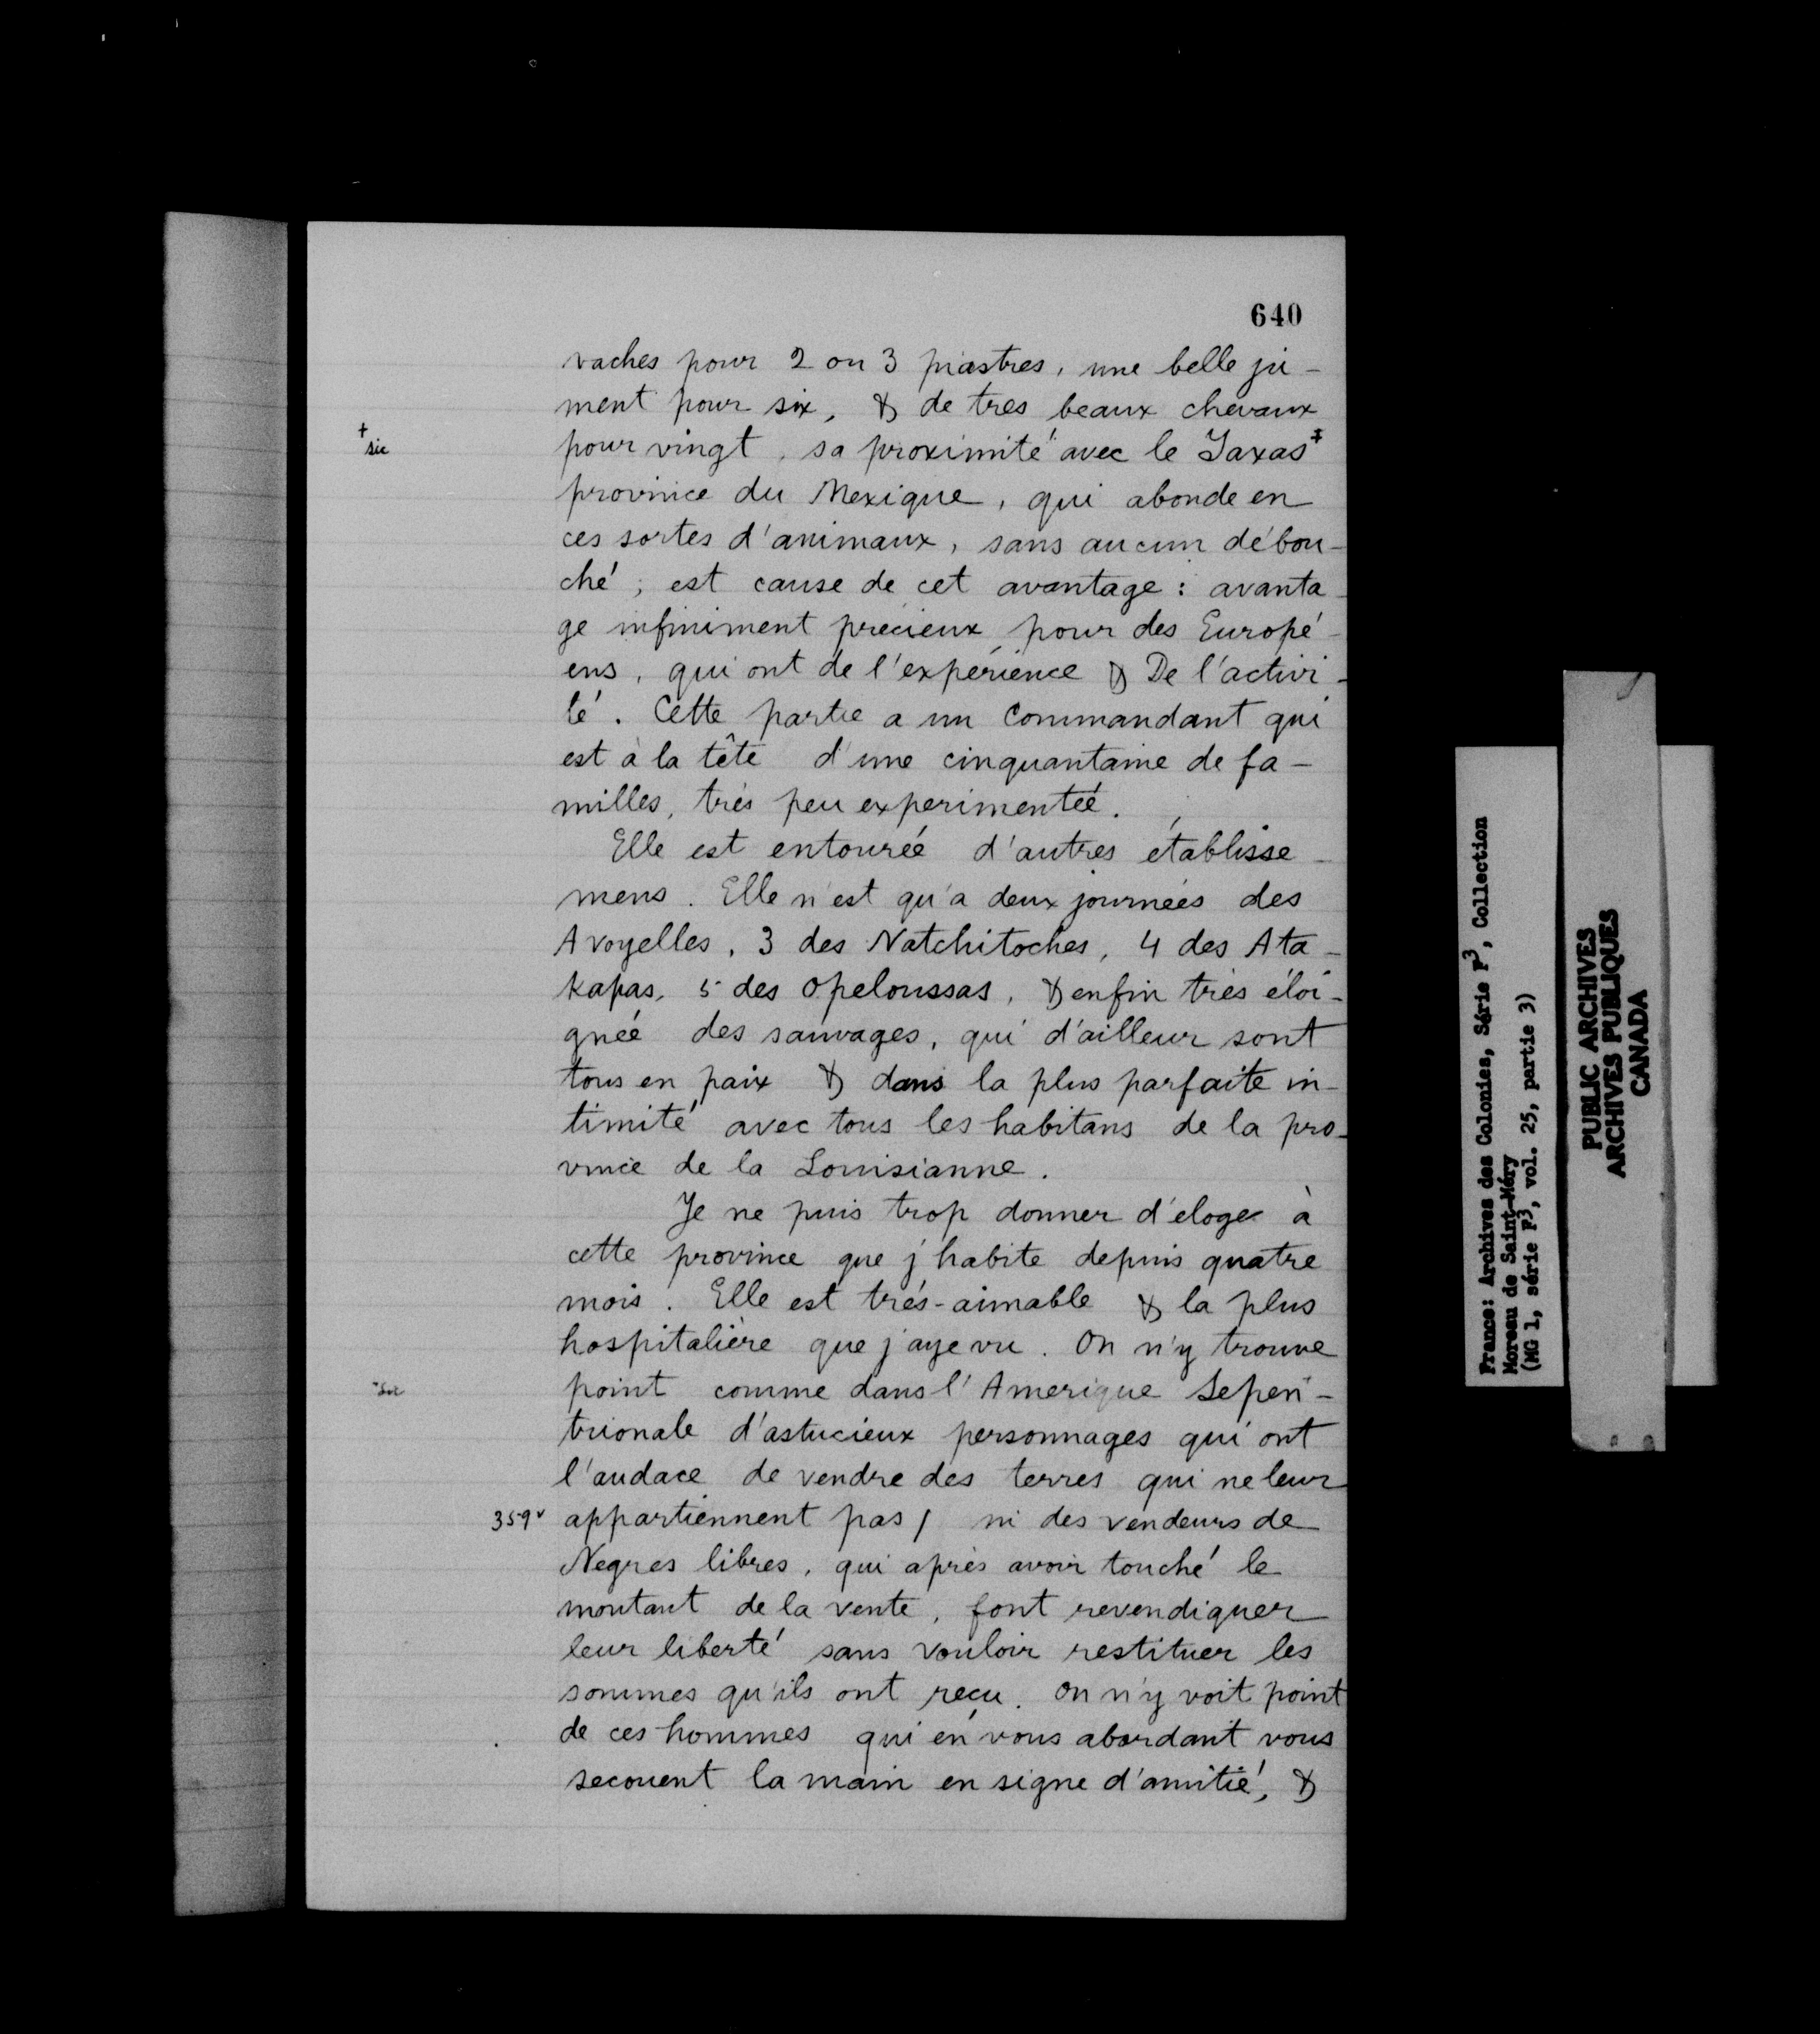 640
vaches pour 2 ou 3 piastres, une belle ju-
ment pour six, & de tres beaux chevaux
+ sic
pour vingt, sa proximité avec le Taxas+
province du Mexique, qui abonde en
ces sortes d'animaux, sans aucun débou-
ché, est cause de cet avantage : avanta-
ge infiniment précieux pour des Europé-
ens, qui ont de l'expérience & De l'activi-
té. Cette partie a un Commandant qui
est à la tête d'une cinquantaine de fa-
milles, très peu experimentée.
Elle est entourée d'autres établisse-
mens. Elle n'est qu'a deux journées des
Avoyelles, 3 des Natchitoches, 4 des Ata-
kapas, 5 des Opeloussas, & enfin très éloi-
gnée des sauvages, qui d'ailleur sont
tous en paix & dans la plus parfaite in-
timité avec tous les habitans de la pro-
vince de la Louisianne.
Je ne puis trop donner d'eloge à
cette province que j'habite depuis quatre
mois. Elle est très-aimable & la plus
hospitalière que j'aye vu. On n'y trouve
sic
point comme dans l'Amerique Sepen-
trionale d'astucieux personnages qui ont
l'audace de vendre des terres qui ne leur
359v
appartiennent pas / ni des vendeurs de
Negres libres, qui après avoir touché le
montant de la vente, font revendiquer
leur liberté sans vouloir restituer les
sommes qu'ils ont reçu. On n'y voit point
de ces hommes qui en vous abordant vous
secouent la main en signe d'amitié, &
France: Archives des Colonies, Série F3, Collection
Moreau de Saint-Méry
(MG 1, série F3, vol. 25, partie 3)
PUBLIC ARCHIVES
ARCHIVES PUBLIQUES
CANADA